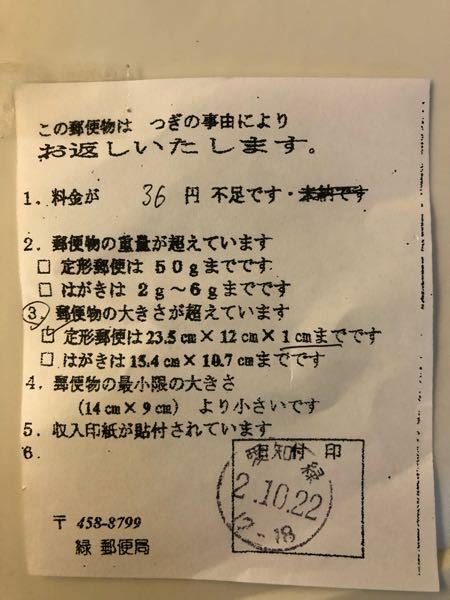 この郵便物は つぎの事由により
お返しいたします。
1. 料金が 36 円 不足です・未納です
2. 郵便物の重量が超えています
□ 定形郵便は 50gまでです
□ はがきは 2g～6gまでです
3. 郵便物の大きさが超えています
□ 定形郵便は23.5cm×12cm×1cmまでです
□ はがきは 15.4cm×10.7cmまでです
4. 郵便物の最小限の大きさ
(14cm×9cm) より小さいです
5. 収入印紙が貼付されています
6.
付 印
愛知 緑
2.10.22
12-18
〒 458-8799
緑 郵便局